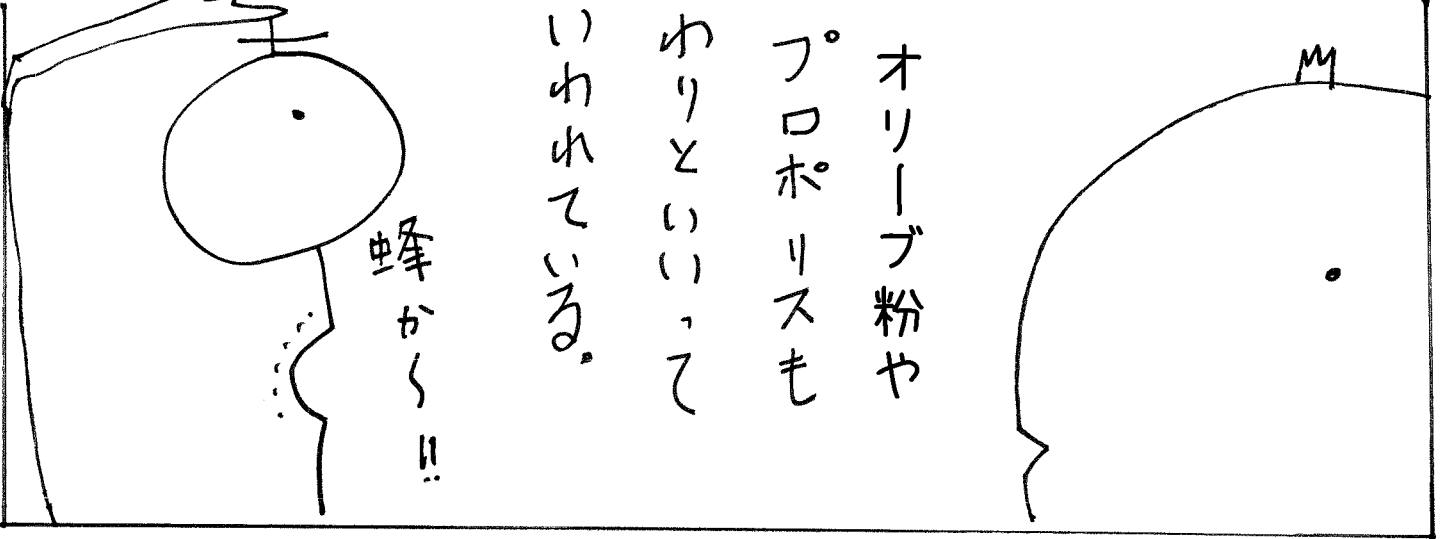 オリーブ粉や
プロポリスも
わりといいって
いわれている。
蜂か〜!!